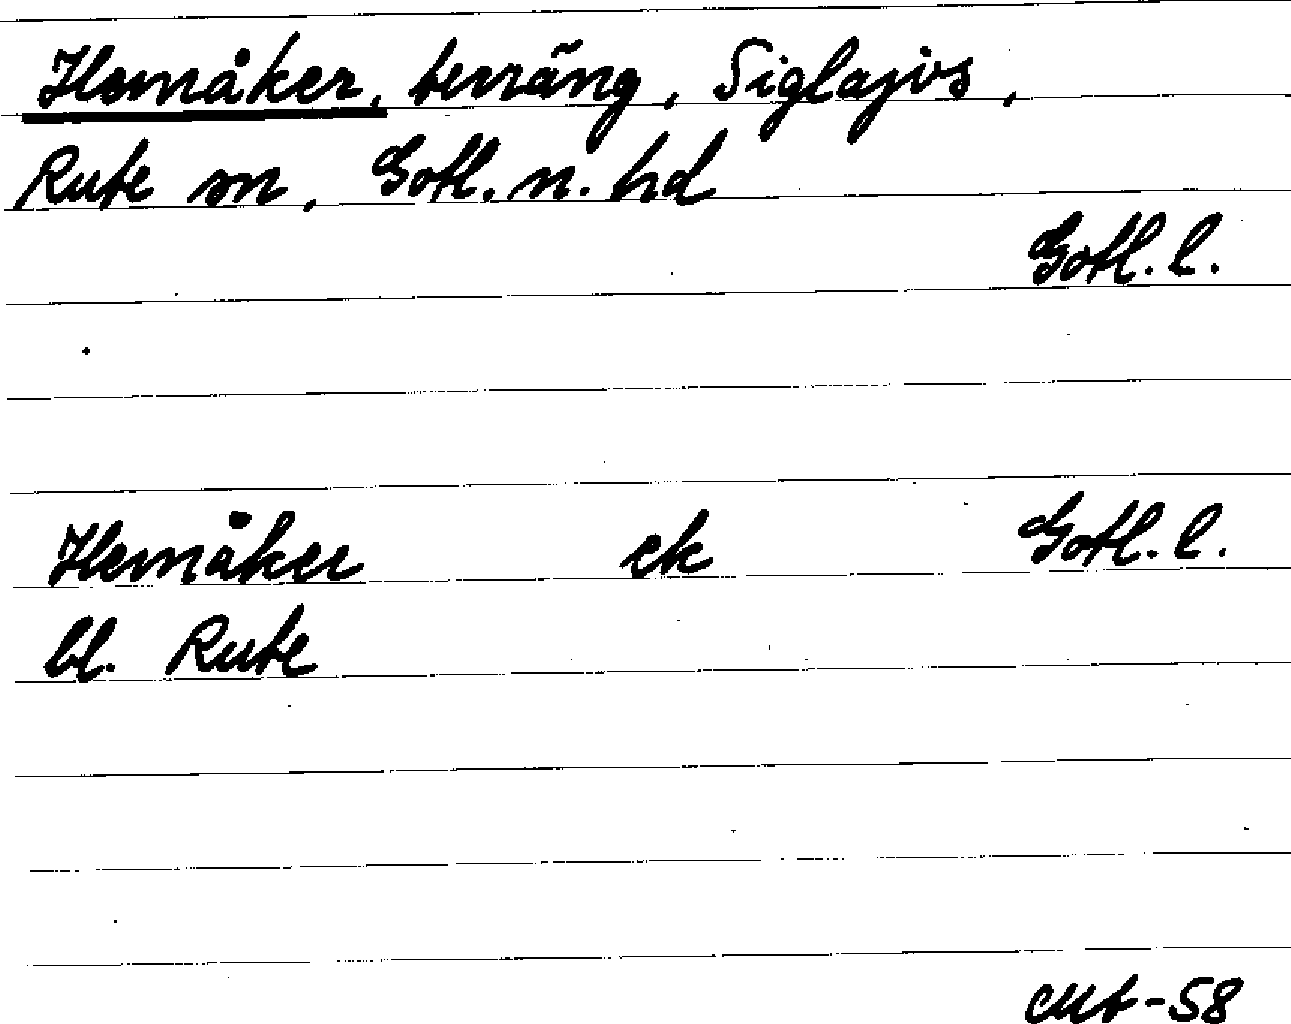 Hemåker, terräng, Siglajvs,
Rute sn, Gotl. n. hd
Gotl. l.
Hemåker ek Gotl. l.
bl. Rute
-58